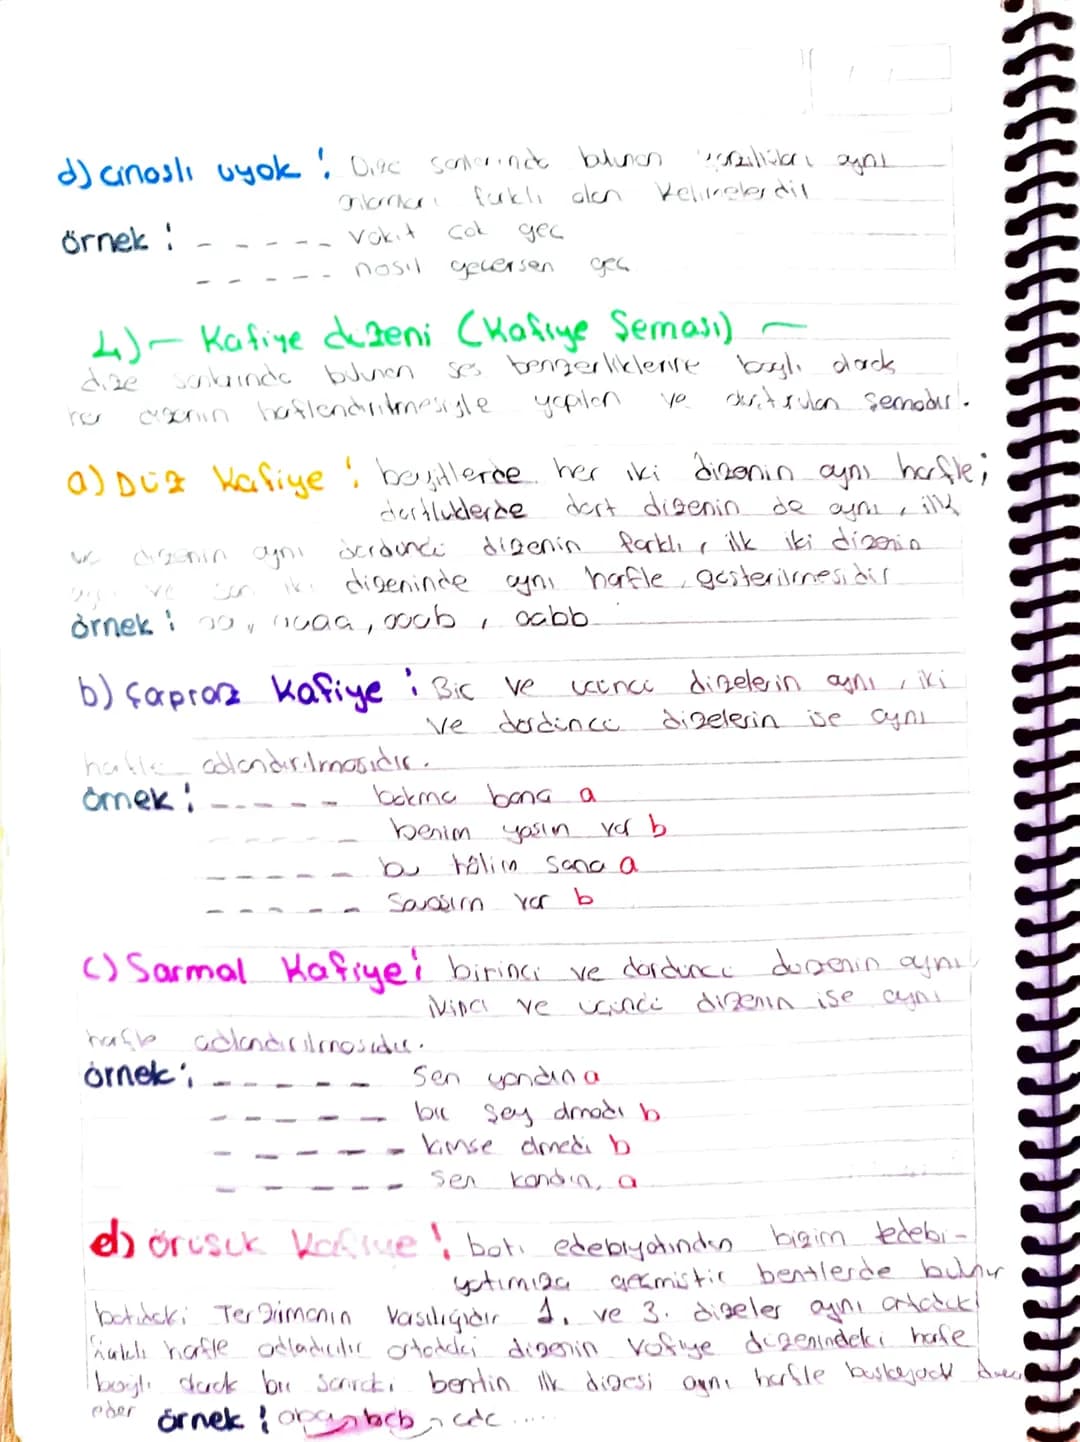 d) cinaslı uyak : Dize sonlarında bulunan yazılışları aynı
anlamları farklı olan kelimelerdir
örnek : - - - - - vakit çok geç
- - - - - nasıl geçersen geç
4)- Kafiye düzeni (Kafiye Şeması) -
dize sonlarında bulunan ses benzerliklerine bağlı olarak
her dizenin harflendirilmesiyle yapılan ve oluşturulan şemadır.
a) Düz Kafiye : beyitlerde her iki dizenin aynı harfle;
dörtlüklerde dört dizenin de aynı, ilk
üç dizenin aynı dördüncü dizenin farklı, ilk iki dizenin
aynı ve son iki dizeninde aynı harfle gösterilmesidir
örnek : aa, aaaa, aaab, aabb
b) Çapraz Kafiye : Bir ve üçüncü dizelerin aynı, iki
ve dördüncü dizelerin ise aynı
harfle adlandırılmasıdır.
örnek : - - - - - bakma bana a
- - - - - benim yaşım var b
- - - - - bu hâlim sana a
- - - - - Savaşım var b
c) Sarmal Kafiye : birinci ve dördüncü düzenin aynı
ikinci ve üçüncü dizenin ise aynı
harfle adlandırılmasıdır.
örnek : - - - - - Sen yandın a
- - - - - bir şey olmadı b
- - - - - kimse olmedi b
- - - - - sen kandın, a
d) örüşük Kafiye : batı edebiyatından bizim edebi-
yatımıza geçmiştir bentlerde bulunur
batıdaki Terzarimanın 1. ve 3. dizeler aynı ortadaki
farklı harfle adladırılır ortadaki dizenin kafiye düzenindeki harfe
bağlı olarak bir sonraki bentin ilk dizesi aynı harfle başlayarak devam
eder örnek : aba, bcb, cdc .....